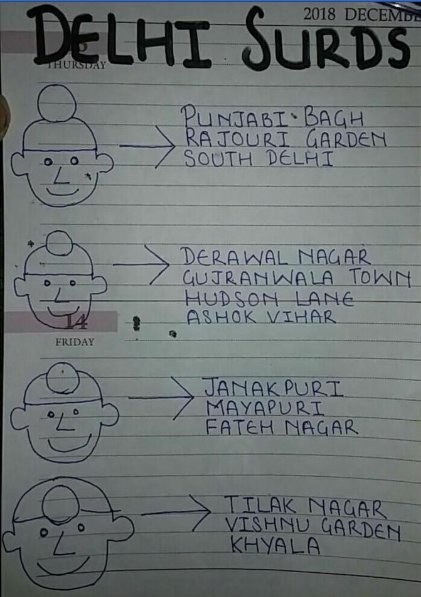 2018 DECEMBE
DELHI SURDS
THURSDAY
PUNJABI BAGH
RAJOURI GARDEN
SOUTH DELHI
DERAWAL NAGAR
GUJRANWALA TOWN
HUDSON LANE
ASHOK VIHAR
14
FRIDAY
JANAKPURI
MAYAPURI
FATEH NAGAR
TILAK NAGAR
VISHNU GARDEN
KHYALA